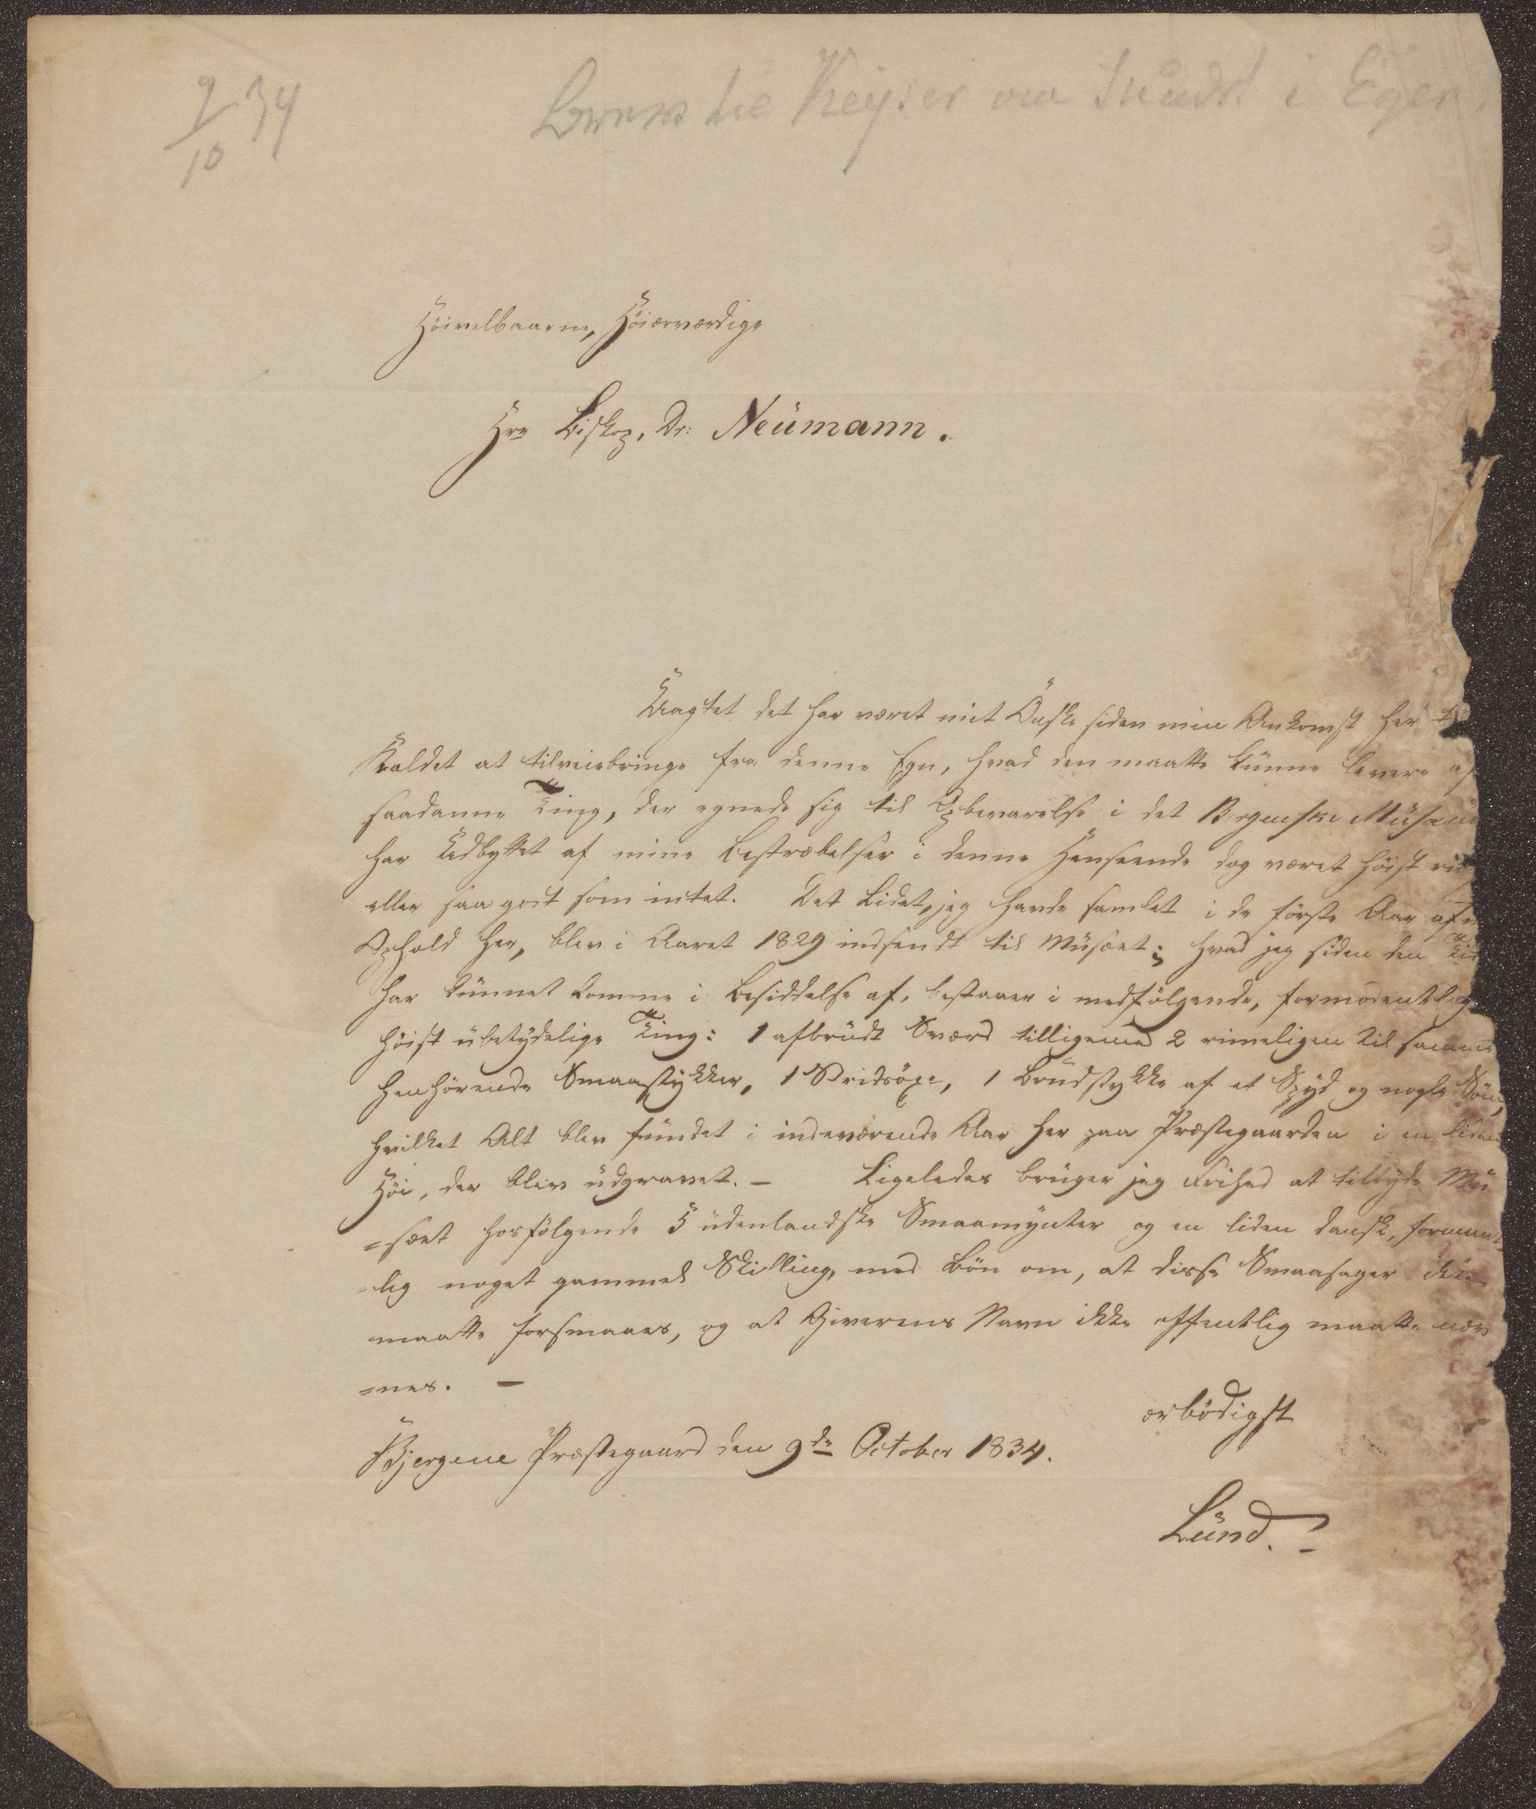 9/10 34
til Keyser om i Eger
Höivelbaarne, Höiærværdige
Hrr Biskop, Dr: Neumann.
Uagtet det har været mit Önske siden min Ankomst her
Kaldet at tilveiebringe fra denne Egn, hvad den maatte kunne levere af
saadanne Ting, der egnede sig til Opbevarelse i det Bergenske Musæu
har Udbyttet af mine Bestræbelser i denne Henseende dog været höist
eller saa godt som intet. Det Lidet, jeg havde samlet i de förste Aar af
Ophold her, blev i Aaret 1829 indsendt til Musæet; hvad jeg siden den Tid
har kunnet komme i Besiddelse af, bestaaer i medfölgende, formodentlig
höist ubetydelige Ting: 1 afbrudt Sværd tilligemed 2 rimeligen til samme
henhörende Smaastykker, 1 Stridsöxe, 1 Brudstykke af et Spyd og nogle Söm,
hvilket Alt blev fundet i indeværende Aar her paa Præstegaarden i en liden
Höi, der blev udgravet. – Ligeledes bruger jeg Frihed at tilbyde Mu
=sæet hosfölgende 5 udenlandske Smaamynter og en liden dansk, forment
=lig noget gammel Skilling, med Bön om, at disse Smaasager ikke
maatte forsmaaes, og at Giverens Navn ikke offentlig maatte næv
=nes. –
ærbödigst
Bjergene Præstegaard den 9de October 1834.
Lund.